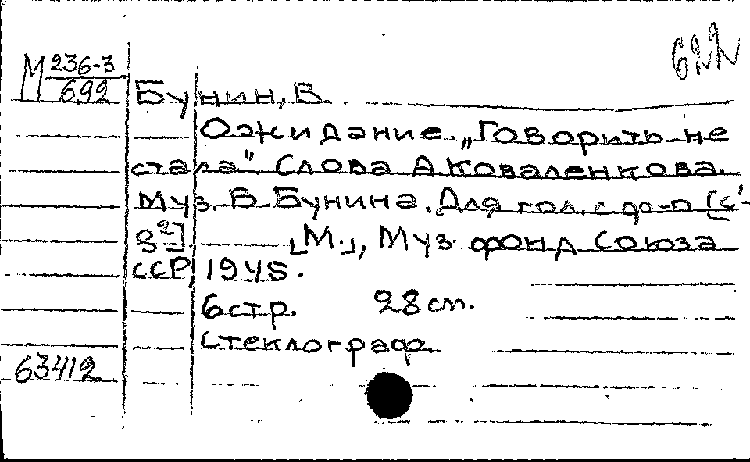 622
М 236-3
692
Бунин, В.
Ожидание. „Говорить не
стала“ Слова А Коваленкова.
Муз. В Бунина. Для гол. с ф-п [c'-
g²] [М.], Муз фонд Союза
ССР, 1945.
6 стр. 28 см.
Стеклограф.
63412